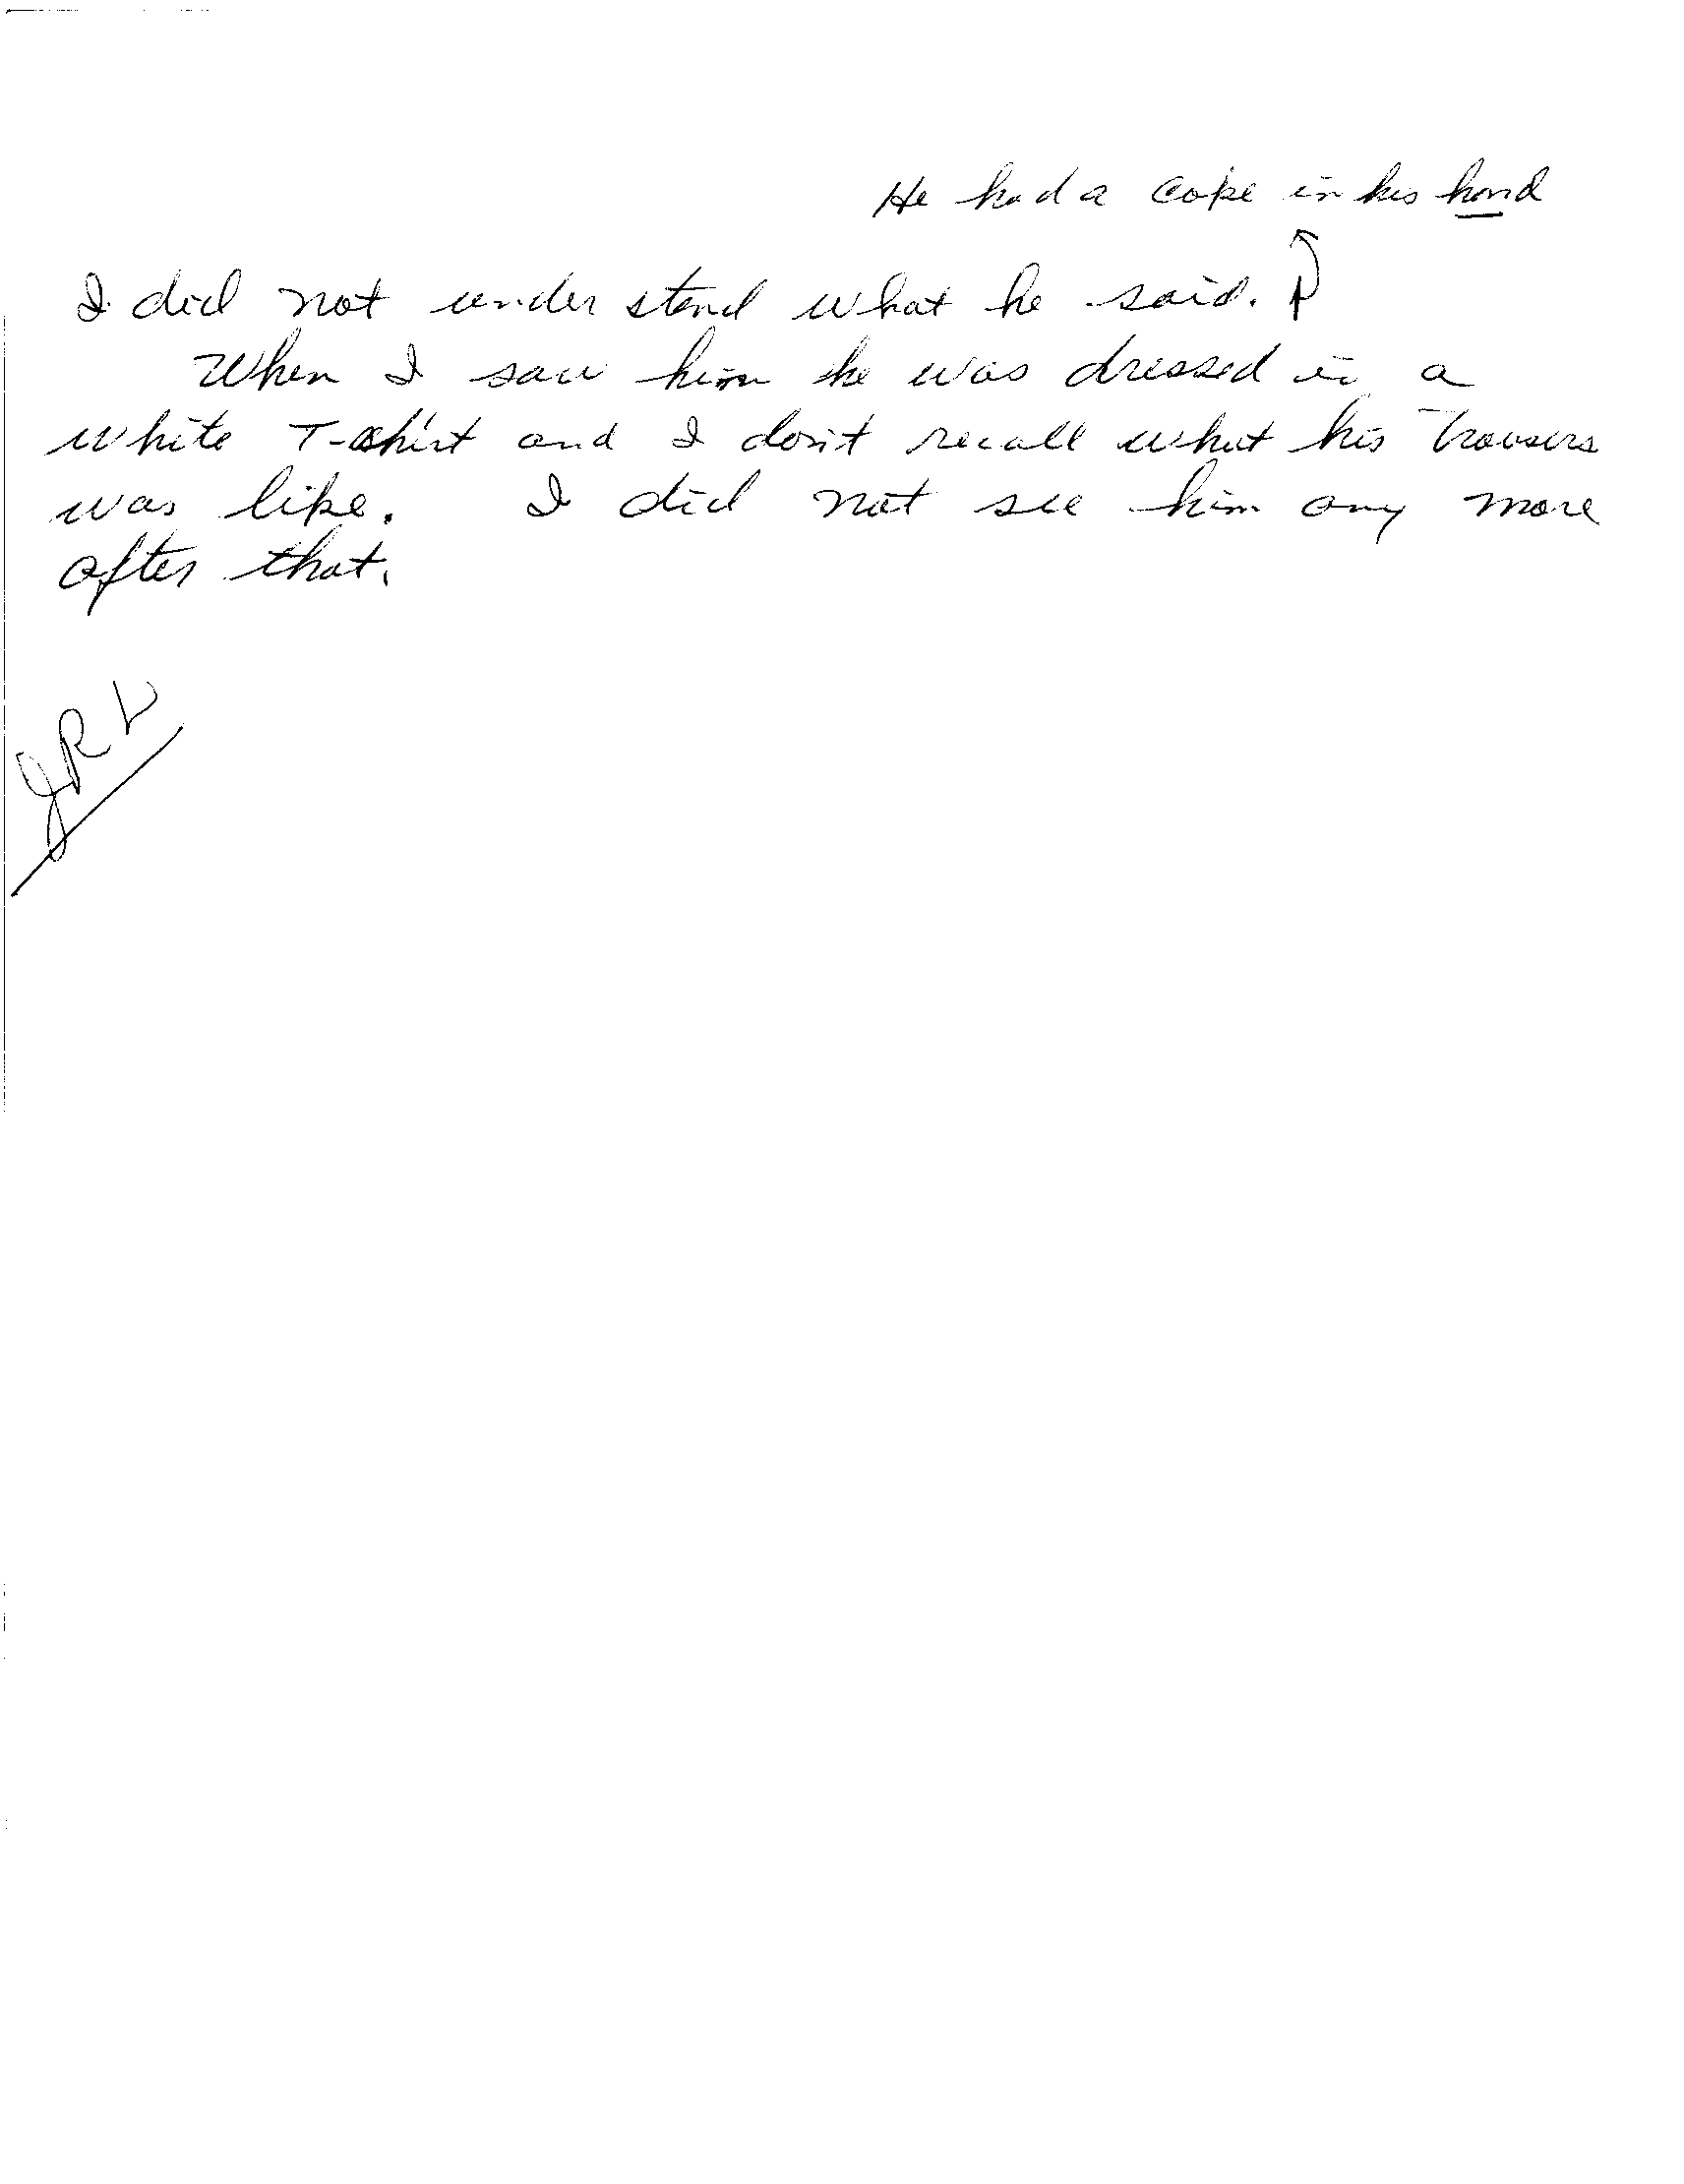 He had a coke in his hand
I did not understand what he said.
When I saw him he was dressed in a
white T-shirt and I don't recall what his Trousers
was like. I did not see him any more
after that.
JRL